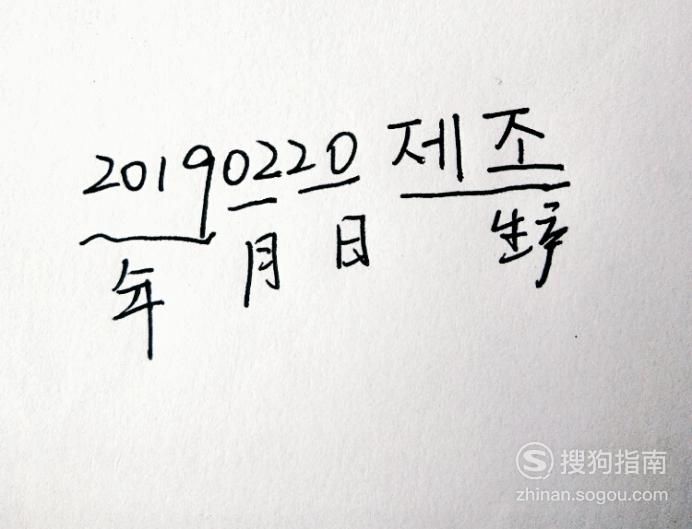 20190220제조
年 月 日 生产
搜狗指南
zhinan.sogou.com